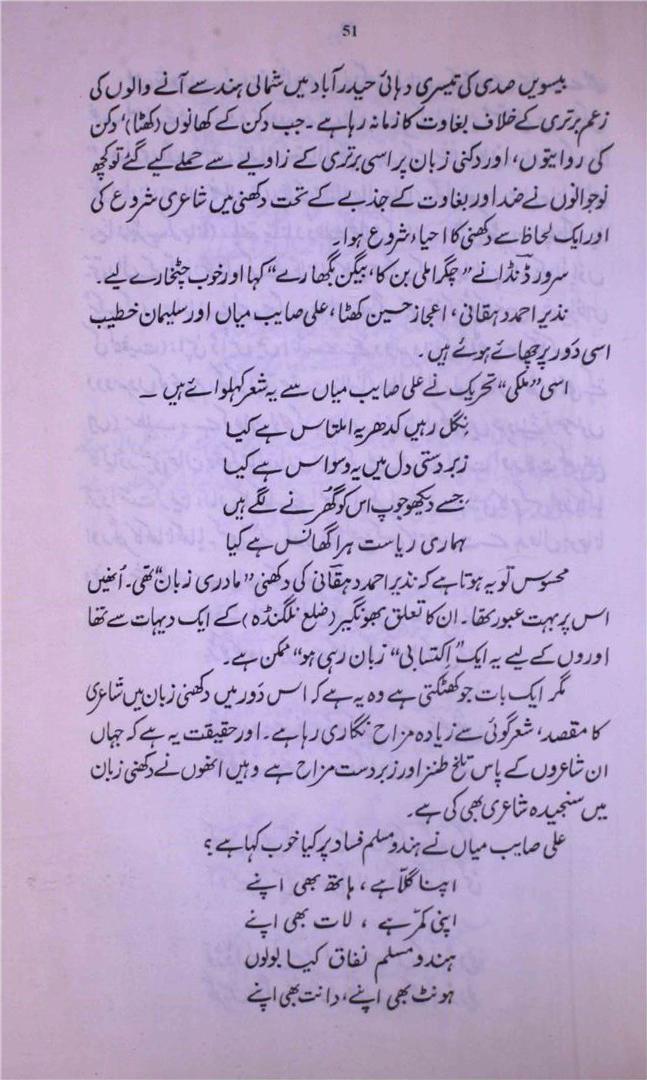 51
بیسویں صدی کی تیسری دہائی حیدرآباد میں شمالی ہند سے آنے والوں کی
زعم برتری کے خلاف بغاوت کا زمانہ رہا ہے۔ جب دکن کے کھانوں (کھٹا)، دکن
کی روایتوں، اور دکنی زبان پر اسی برتری کے زاویے سے حملے کیے گئے تو کچھ
نوجوانوں نے ضد اور بغاوت کے جذبے کے تحت دکھنی میں شاعری شروع کی
اور ایک لحاظ سے دکھنی کا احیاء شروع ہوا۔
سرور ڈنڈا نے ”چگر املی بن کا، بیگن بگھارے“ کہا اور خوب چٹخارے لیے۔
نذیر احمد دہقانی، اعجاز حسین کھٹا، علی صایب میاں اور سلیمان خطیب
اسی دَور پر چھائے ہوئے ہیں۔
اسی ”ملکی“ تحریک نے علی صایب میاں سے یہ شعر کہلوائے ہیں ۔
نِگل رہیں کدھر یہ املتاس ہے کیا
زبردستی دل میں یہ وسواس ہے کیا
جسے دیکھو جوپ اس کو گھُرنے لگے ہیں
ہماری ریاست ہرا گھانس ہے کیا
محسوس تو یہ ہوتا ہے کہ نذیر احمد دہقانی کی دکھنی ”مادری زبان“ تھی۔ اُنھیں
اس پر بہت عبور تھا۔ ان کا تعلق بھونگیر (ضلع نلگنڈہ) کے ایک دیہات سے تھا
اوروں کے لیے یہ ایک ”اِکتسابی“ زبان رہی ہو“ ممکن ہے۔
مگر ایک بات جو کھٹکتی ہے وہ یہ ہے کہ اس دَور میں دکھنی زبان میں شاعری
کا مقصد، شعر گوئی سے زیادہ مزاح نگاری رہا ہے۔ اور حقیقت یہ ہے کہ جہاں
ان شاعروں کے پاس تلخ طنز اور زبردست مزاح ہے وہیں انھوں نے دکھنی زبان
میں سنجیدہ شاعری بھی کی ہے۔
علی صایب میاں نے ہندو مسلم فساد پر کیا خوب کہا ہے؟
اپنا گلّا ہے، ہاتھ بھی اپنے
اپنی کمّر ہے، لات بھی اپنے
ہندو مسلم نفاق کیا بولوں
ہونٹ بھی اپنے، دانت بھی اپنے